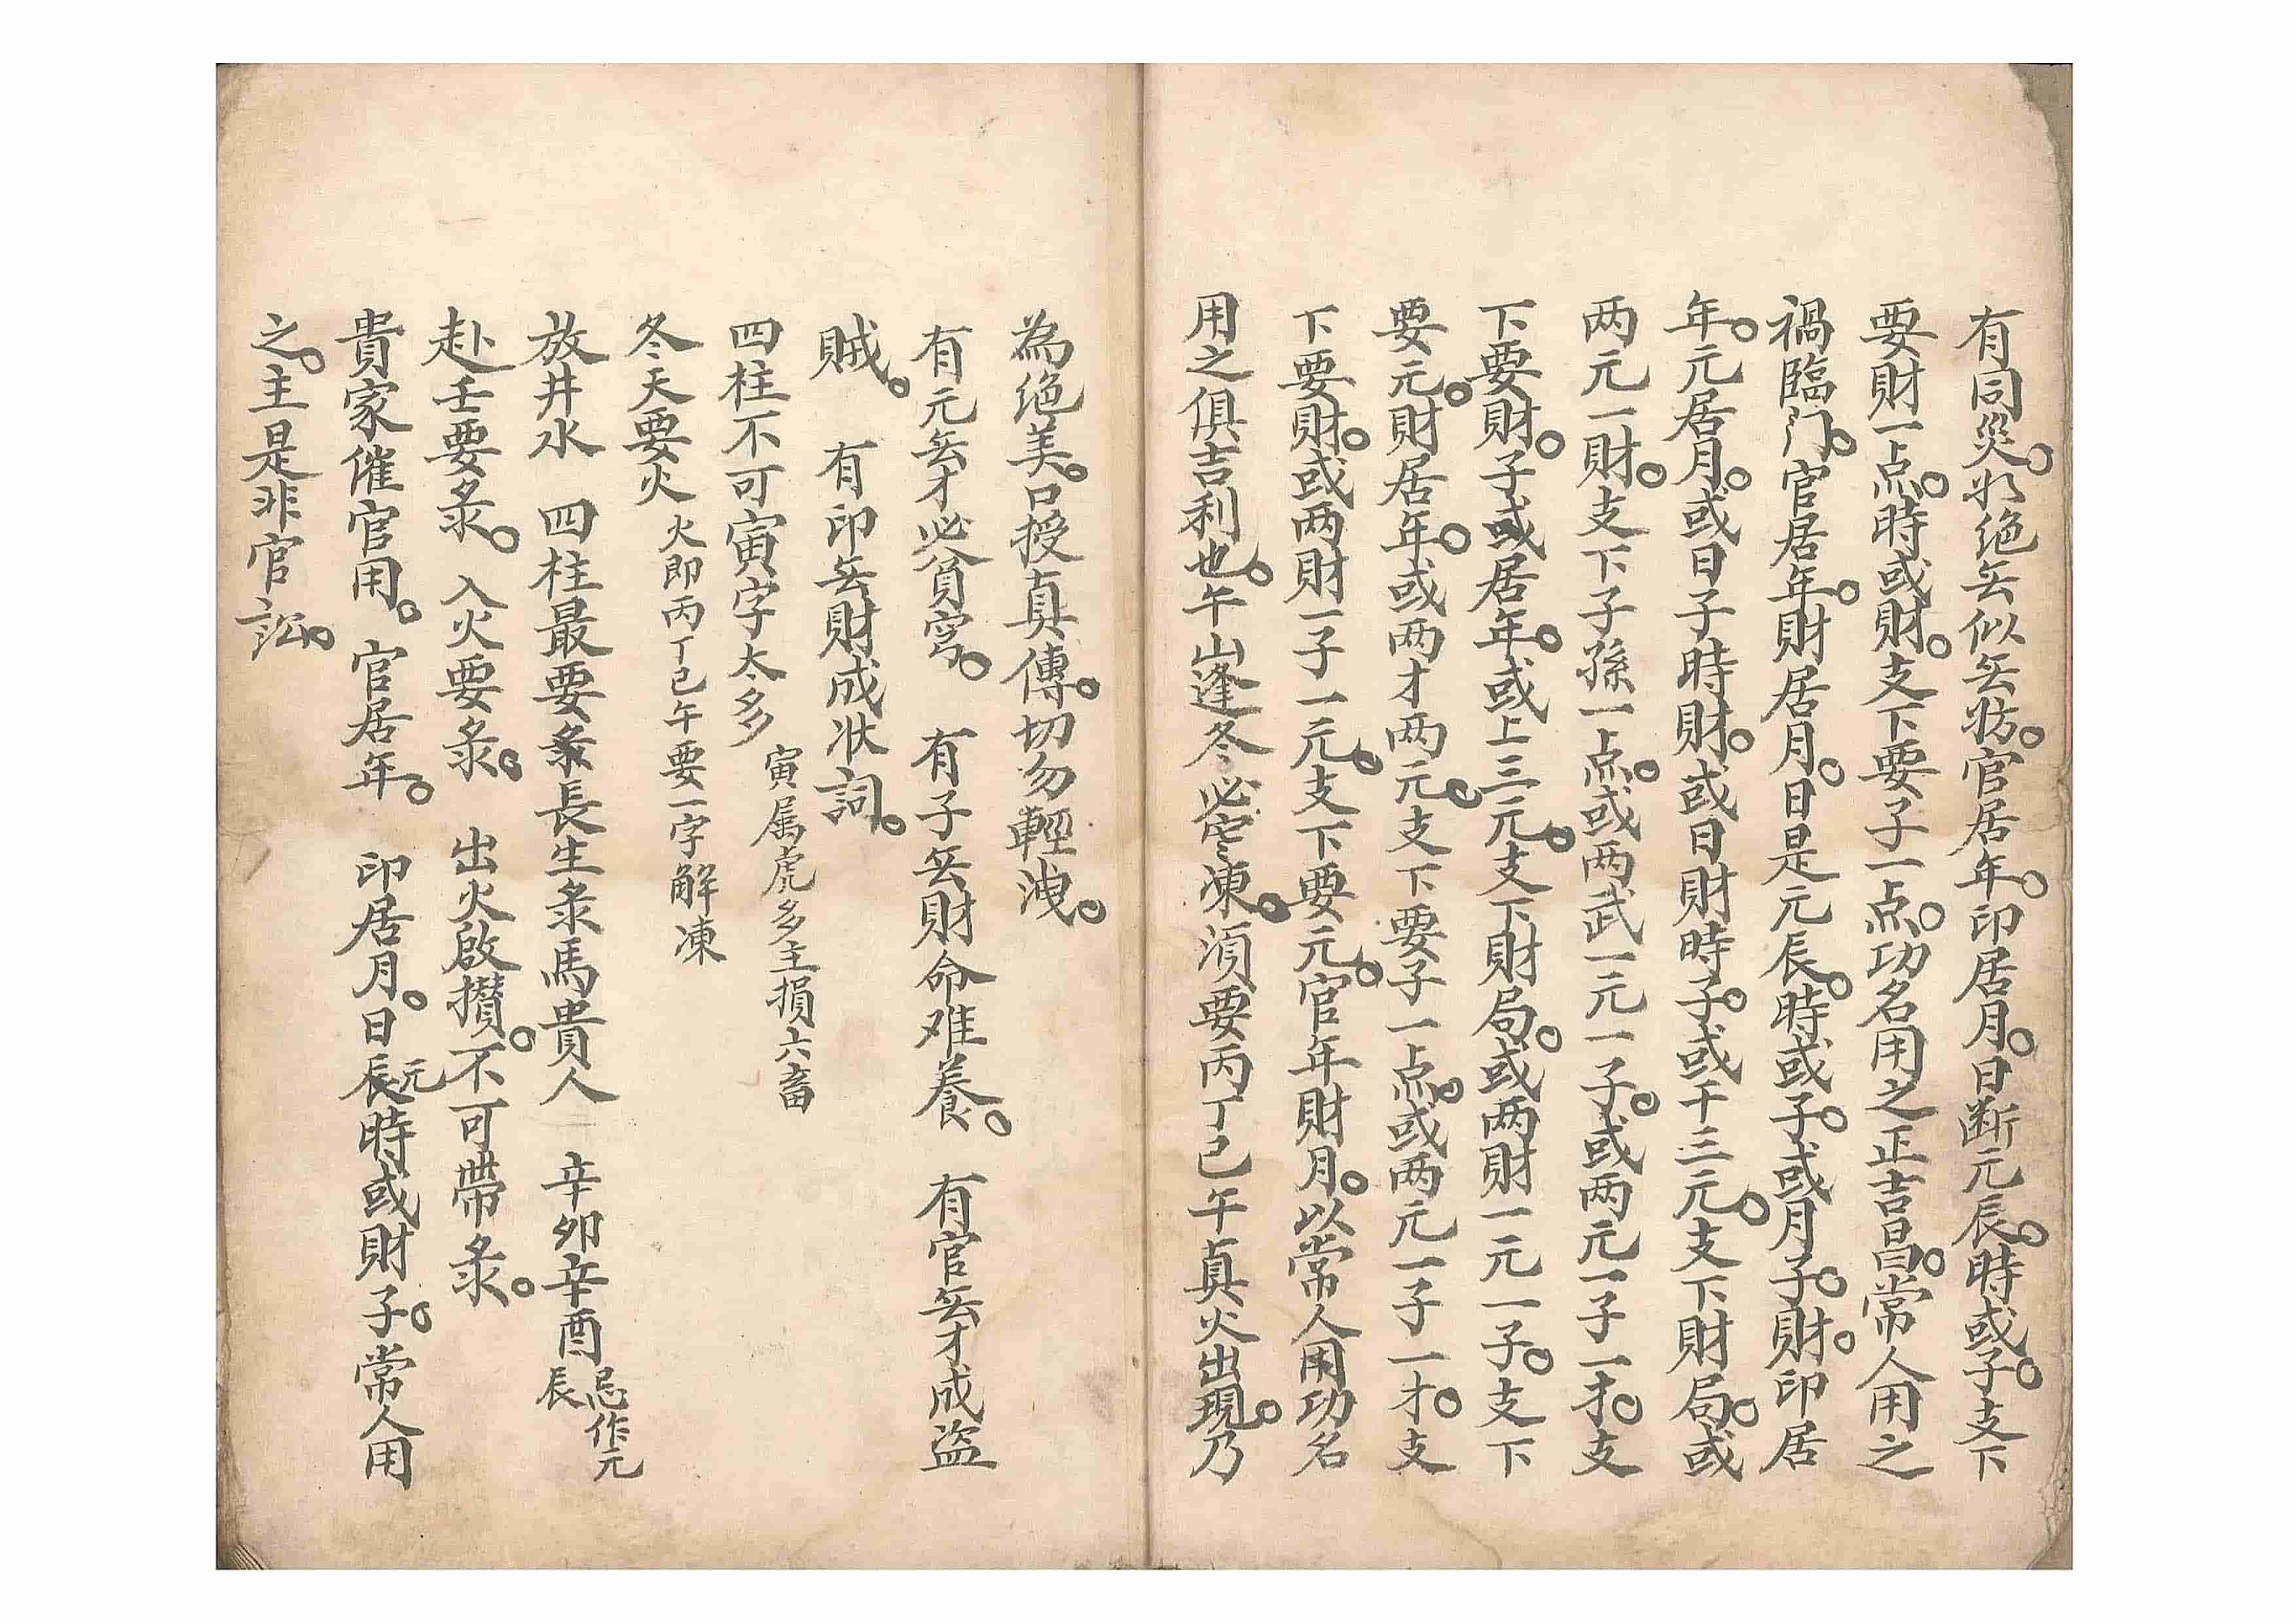 有同災。犯绝無似無妨。官居年。印居月。日断元辰。時或子。支下
要財一点。時或財。支下要子一点。功名用之正吉昌。常人用之
禍臨门。官居年。財居月。日是元辰。時或子。或月子。財。印居
年。元居月。或日子時財。或日財時子。或干三元。支下財局。或
两元一財。支下子孫一点。或两武一元一子。或两元一子一才。支
下要財。子或居年。或上三元。支下財局。或两財一元一子。支下
要元。財居年。或两才两元。支下要子一点。或两元一子一才。支
下要財。或两財一子一元。支下要元。官年財月。以常人用功名
用之俱吉利也。午山逢冬必寒凍。須要丙丁巳午真火出現。乃
為绝美。口授真傳。切勿輕洩。
有元無才必貧窮。 有子無財命难養。 有官無才成盗
賊。 有印無財成状詞。
四柱不可寅字太多 寅属虎多主損六畜
冬天要火 火即丙丁巳午要一字解凍
放井水 四柱最要彔長生彔馬貴人 辛卯辛酉 忌作元辰
赴壬要彔。 入火要彔。 出火啟攢。不可帶彔。
貴家催官用。 官居年。 印居月。日元辰時或財子。常人用
之。主是非官訟。